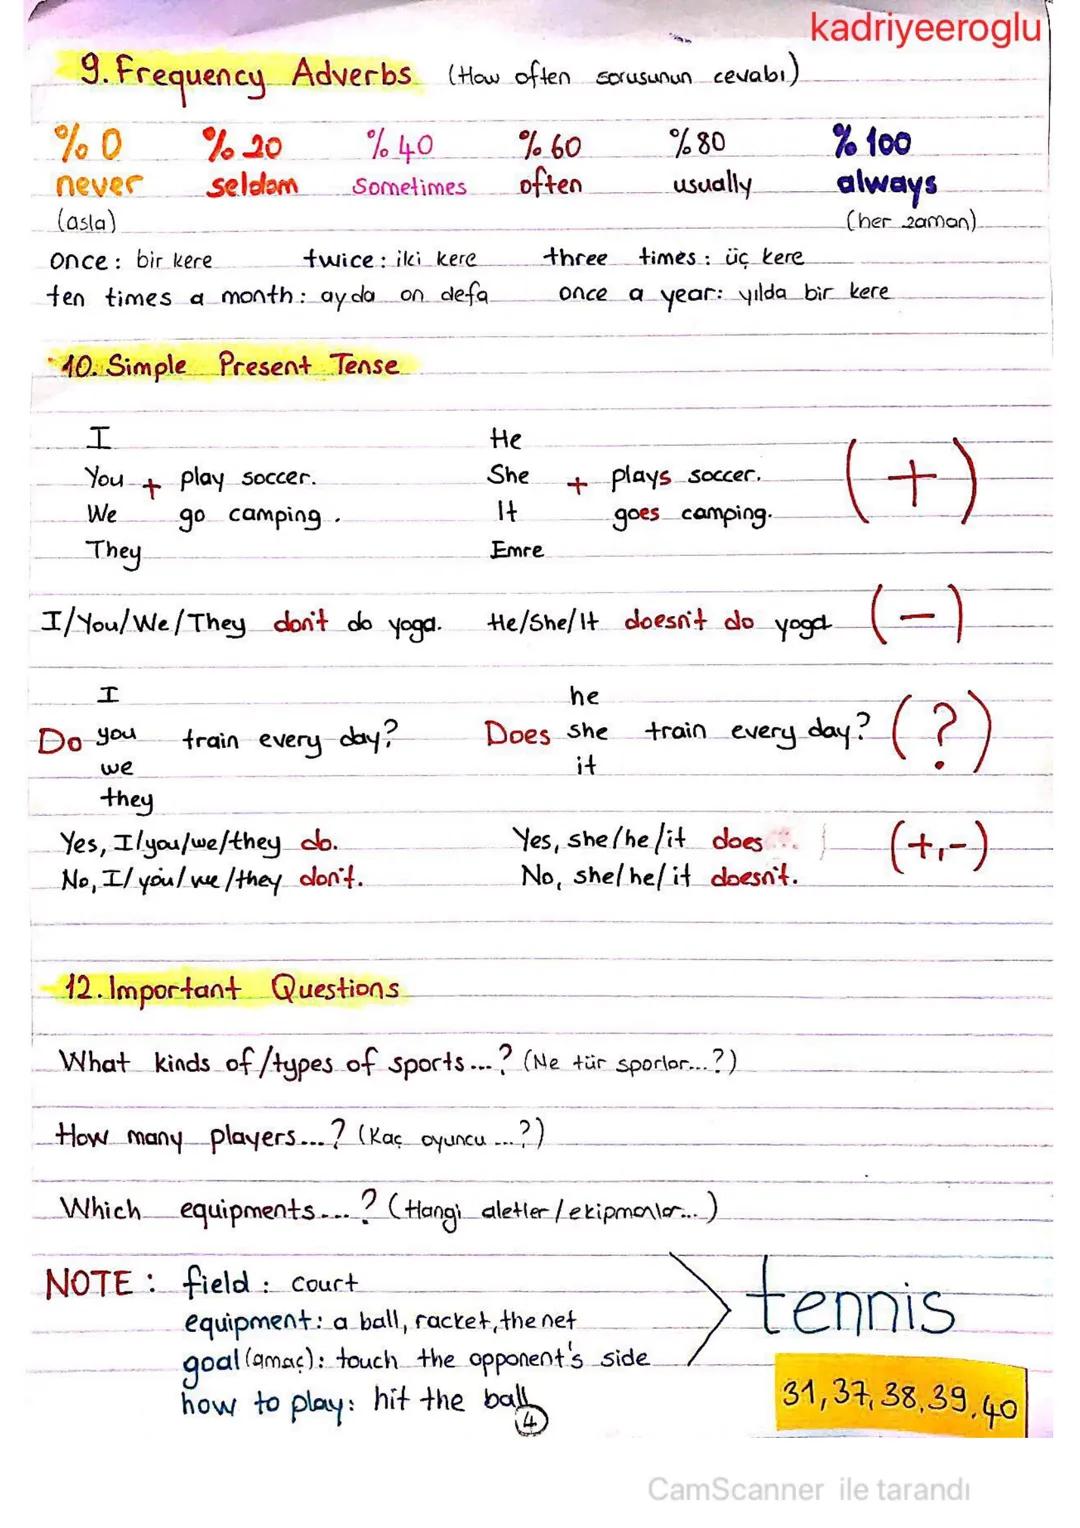 kadriyeeroglu
9. Frequency Adverbs (How often sorusunun cevabı)
%0 %20 %40 %60 %80 %100
never seldom sometimes often usually always
(asla) (her zaman)
once : bir kere twice : iki kere three times : üç kere
ten times a month : ayda on defa once a year : yılda bir kere
10. Simple Present Tense
I He
You + play soccer. She + plays soccer. (+)
We go camping. It goes camping.
They Emre
I/You/We/They don't do yoga. He/She/It doesn't do yoga (-)
I he
Do you train every day? Does she train every day? (?)
we it
they
Yes, I/you/we/they do. Yes, she/he/it does (+,-)
No, I/you/we/they don't. No, she/he/it doesn't.
12. Important Questions
What kinds of/types of sports...? (Ne tür sporlar...?)
How many players...? (Kaç oyuncu ...?)
Which equipments....? (Hangi aletler/ekipmanlar...)
NOTE : field : court
equipment : a ball, racket, the net tennis
goal (amaç) : touch the opponent's side
how to play : hit the ball
31, 37, 38, 39, 40
4
CamScanner ile tarandı